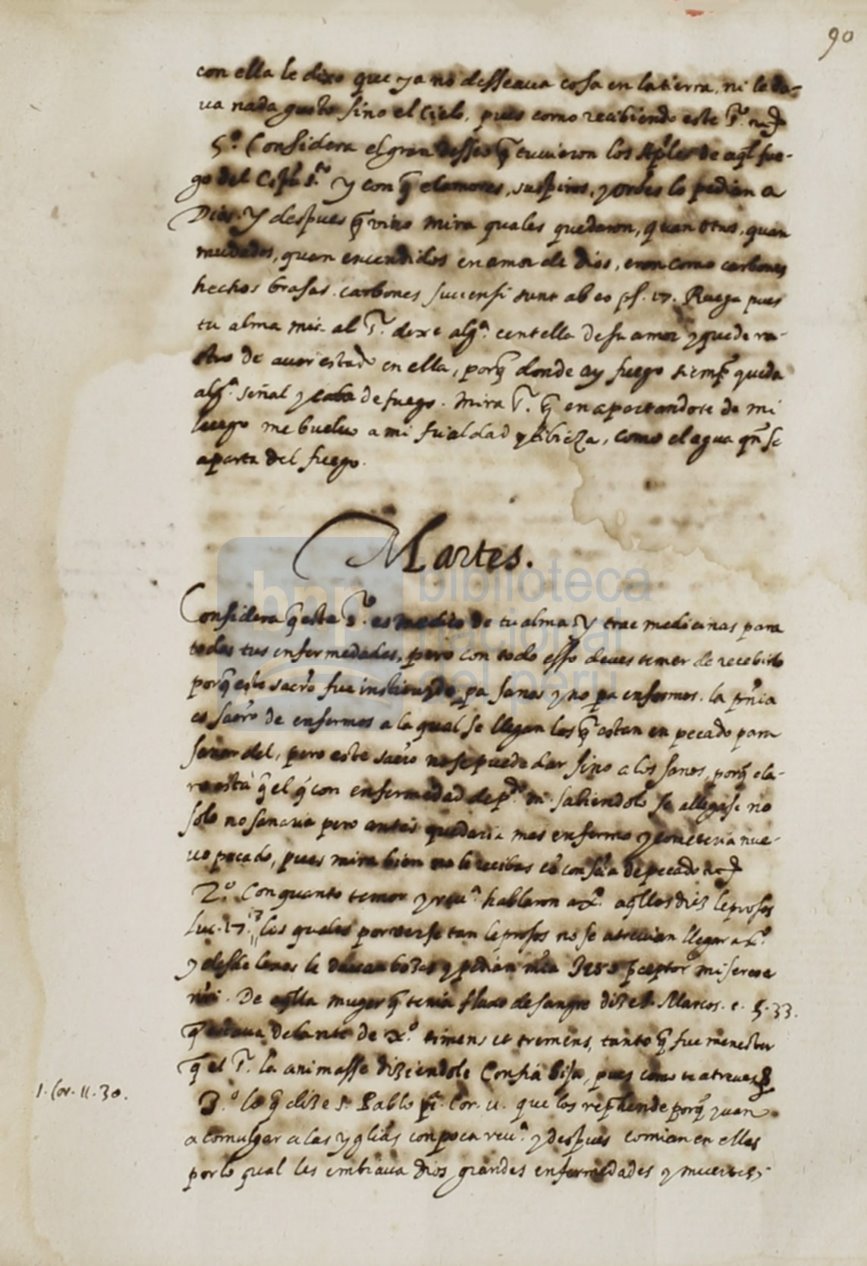 90
con ella le dixo que ya no desseaua cosa en la tierra, ni le da-
ua nada gusto sino el Cielo, pues como recibiendo este Sr.
5º. Considera el gran desseo q̃ tuuieron los Aples de aql̃ fue-
go del Espũ Sto. y con q̃ clamores, suspiros, y orōes lo pedian a
Dios. Y despues q̃ vino mira quales quedaron, quan otros, quan
mudados, quan encendidos en amor de Dios, eran como carbones
hechos brasas. carbones succensi sunt ab eo ps. 17. Ruega pues
tu alma mia al Sr. dexe algª. centella de su amor y quede ra-
stro de auer estado en ella, porq̃ donde ay fuego siempr̃ queda
algª. señal y de fuego. Mira Sr. q̃ en apartandote de mi
luego me buelvo a mi frialdad y tibieza, como el agua qñ se
aparta del fuego.
Martes.
Considera q̃ este Sr. es medico de tu alma y trae medicinas para
todas tus enfermedades, pero con todo esso deues temer de recebirlo
porq̃ este sacro fue instituydo pa sanos y no pa enfermos. la pñia
es sacro de enfermos a la qual se llegan los q̃ estan en pecado para
sanar del, pero este sacro no se puede dar sino a los sanos, porq̃ cla-
ro està q̃ el q̃ con enfermedad de pdo. m sabiendolo se allegase no
solo no sanaria pero antes quedaria mas enfermo y cometeria nue-
uo pecado, pues mira bien no lo recibas cō consña de pecado
2º. Con quanto temor y reuª. hablaron a Xº. aqllos diez leprosos
Luc. 17. los quales por verse tan leprosos no se atreuian llegar a Xº.
y desde lexos le dauan bozes y pedian Jesu pceptor miserere
nr̃i. De aqlla muger q̃ tenia fluxo de sangre dize S. Marcos. c. 5. 33.
q̃ estaua delante de Xº. timens et tremens, tanto q̃ fue menester
q̃ el Sr. la animasse diziendole Confia hija, pues como te atreues
3º. lo q̃ dize S. Pablo pª. Cor. 11. que los rephende porq̃ yuan
1. Cor. 11. 30.
a comulgar a las yglias con poca reuª. y despues comian en ellas
por lo qual les embiaua Dios grandes enfermedades y muertes,